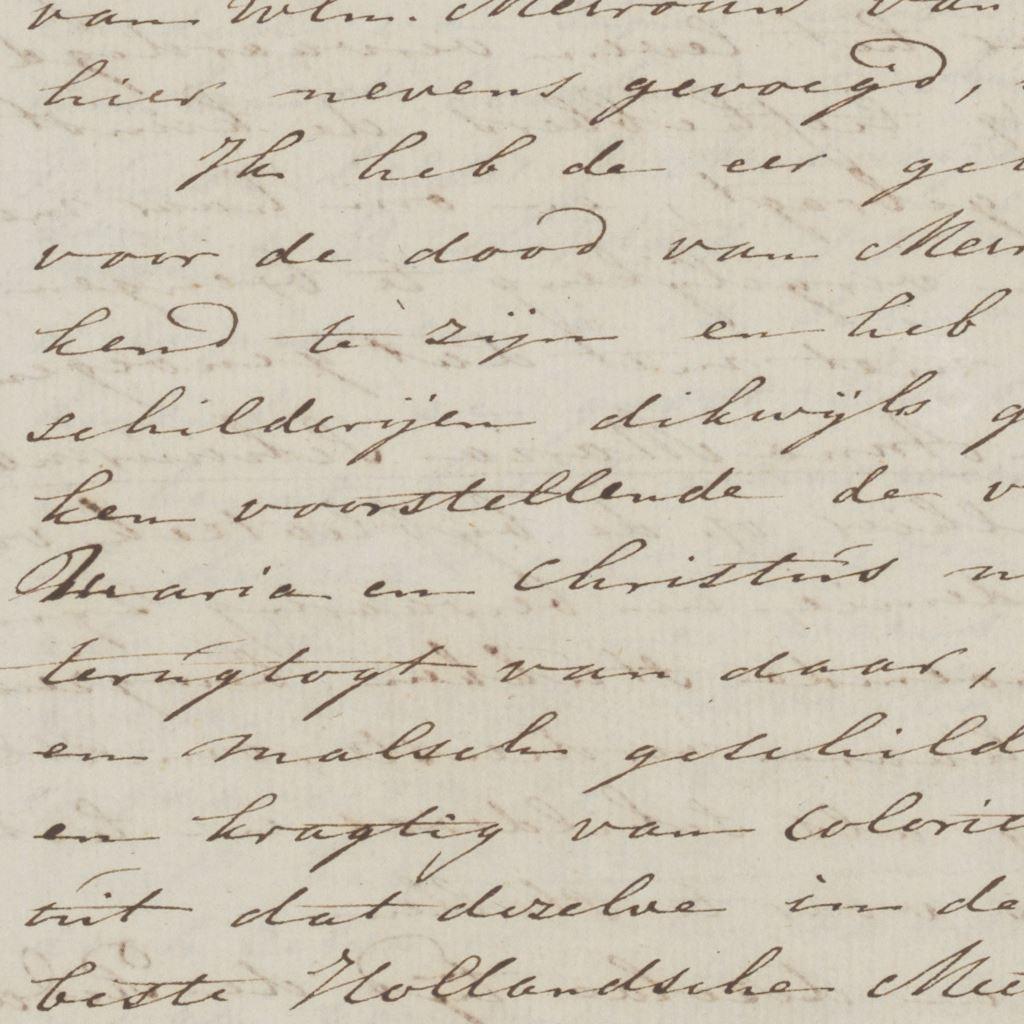 van Wlm. Mevrouw van
hier nevens gevoegd,
Ik heb de eer ge
voor de dood van Mevr
kend te zijn en heb
schilderijen dikwijls g
ken voorstellende de v
Maria en Christus n
terugtogt van daar,
en malsch geschild
en kragtig van Colorit
uit dat dezelve in de
beste Hollandsche Mee